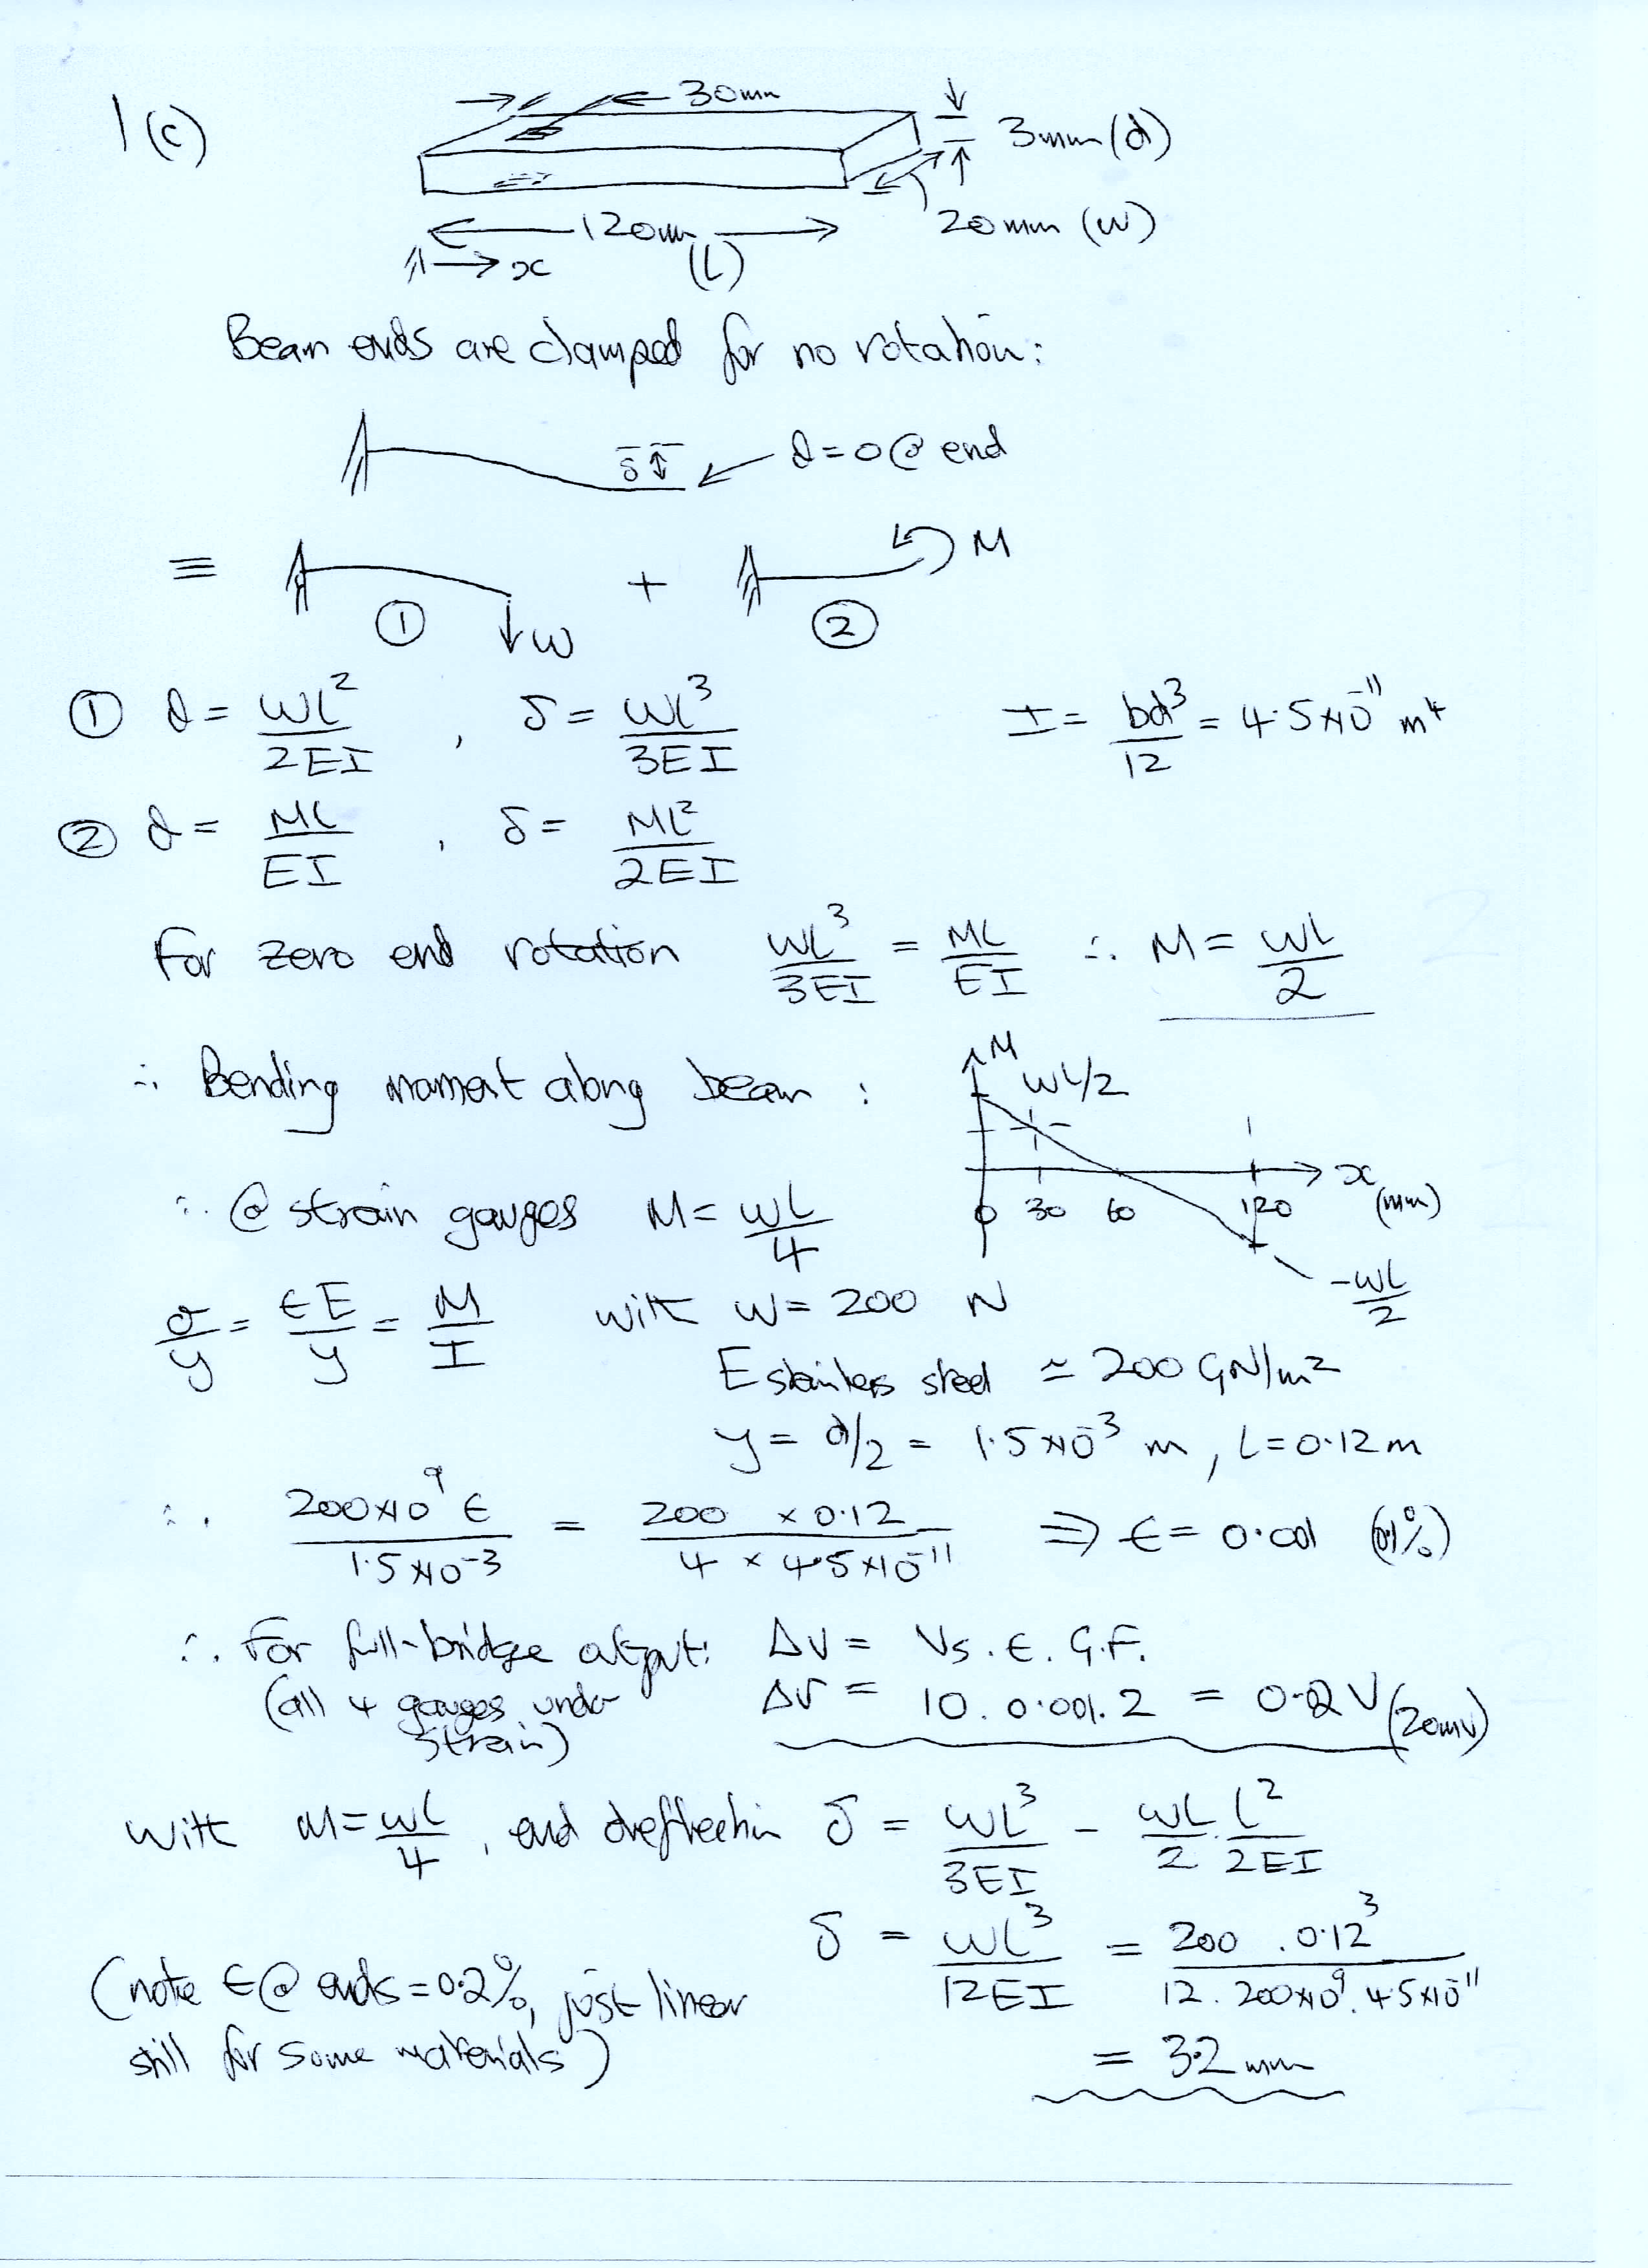 1(c)
30mm
3mm (d)
20mm (w)
120mm
(L)
x
Beam ends are clamped for no rotation:
δ
θ=0 @ end
≡ + M
① ②
W
① θ = WL²/2EI , δ = WL³/3EI I = bd³/12 = 4.5×10⁻¹¹ m⁴
② θ = ML/EI , δ = ML²/2EI
For zero end rotation WL³/3EI = ML/EI ∴ M = WL/2
∴ Bending moment along beam :
M
WL/2
x
(mm)
0 30 60 120
-WL/2
∴ @ strain gauges M = WL/4
σ/y = εE/y = M/I with W = 200 N
E stainless steel ≃ 200 GN/m²
y = d/2 = 1.5×10⁻³ m, L=0.12m
∴ 200×10⁹ ε/1.5×10⁻³ = 200 × 0.12/4 × 4.5×10⁻¹¹ ⇒ ε = 0.001 (0.1%)
∴ For full-bridge output: ΔV = Vs. ε. G.F.
(all 4 gauges under strain)
ΔV = 10. 0.001. 2 = 0.02 V (20mV)
With M = WL/4, end deflection δ = WL³/3EI - WL/2 . L²/2EI
δ = WL³/12EI = 200 . 0.12³/12 . 200×10⁹ . 4.5×10⁻¹¹
(note ε @ ends = 0.2%, just linear
still for some materials)
= 3.2 mm